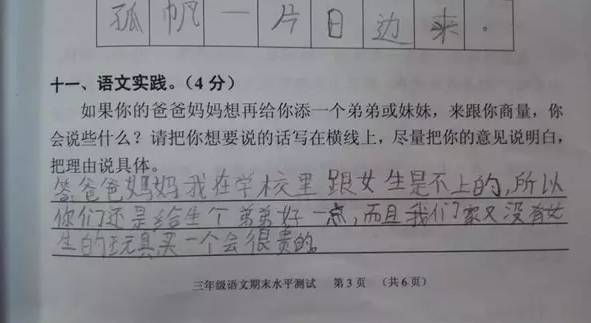 孤帆一片日边来。
十一、语文实践。(4分)
如果你的爸爸妈妈想再给你添一个弟弟或妹妹,来跟你商量,你
会说些什么?请把你想要说的话写在横线上,尽量把你的意见说明白,
把理由说具体。
答爸爸妈妈我在学校里跟女生是不上的,所以
你们还是给生个弟弟好一点,而且我们家又没有女
生的玩具买一个会很贵的。
三年级语文期末水平测试 第3页 (共6页)